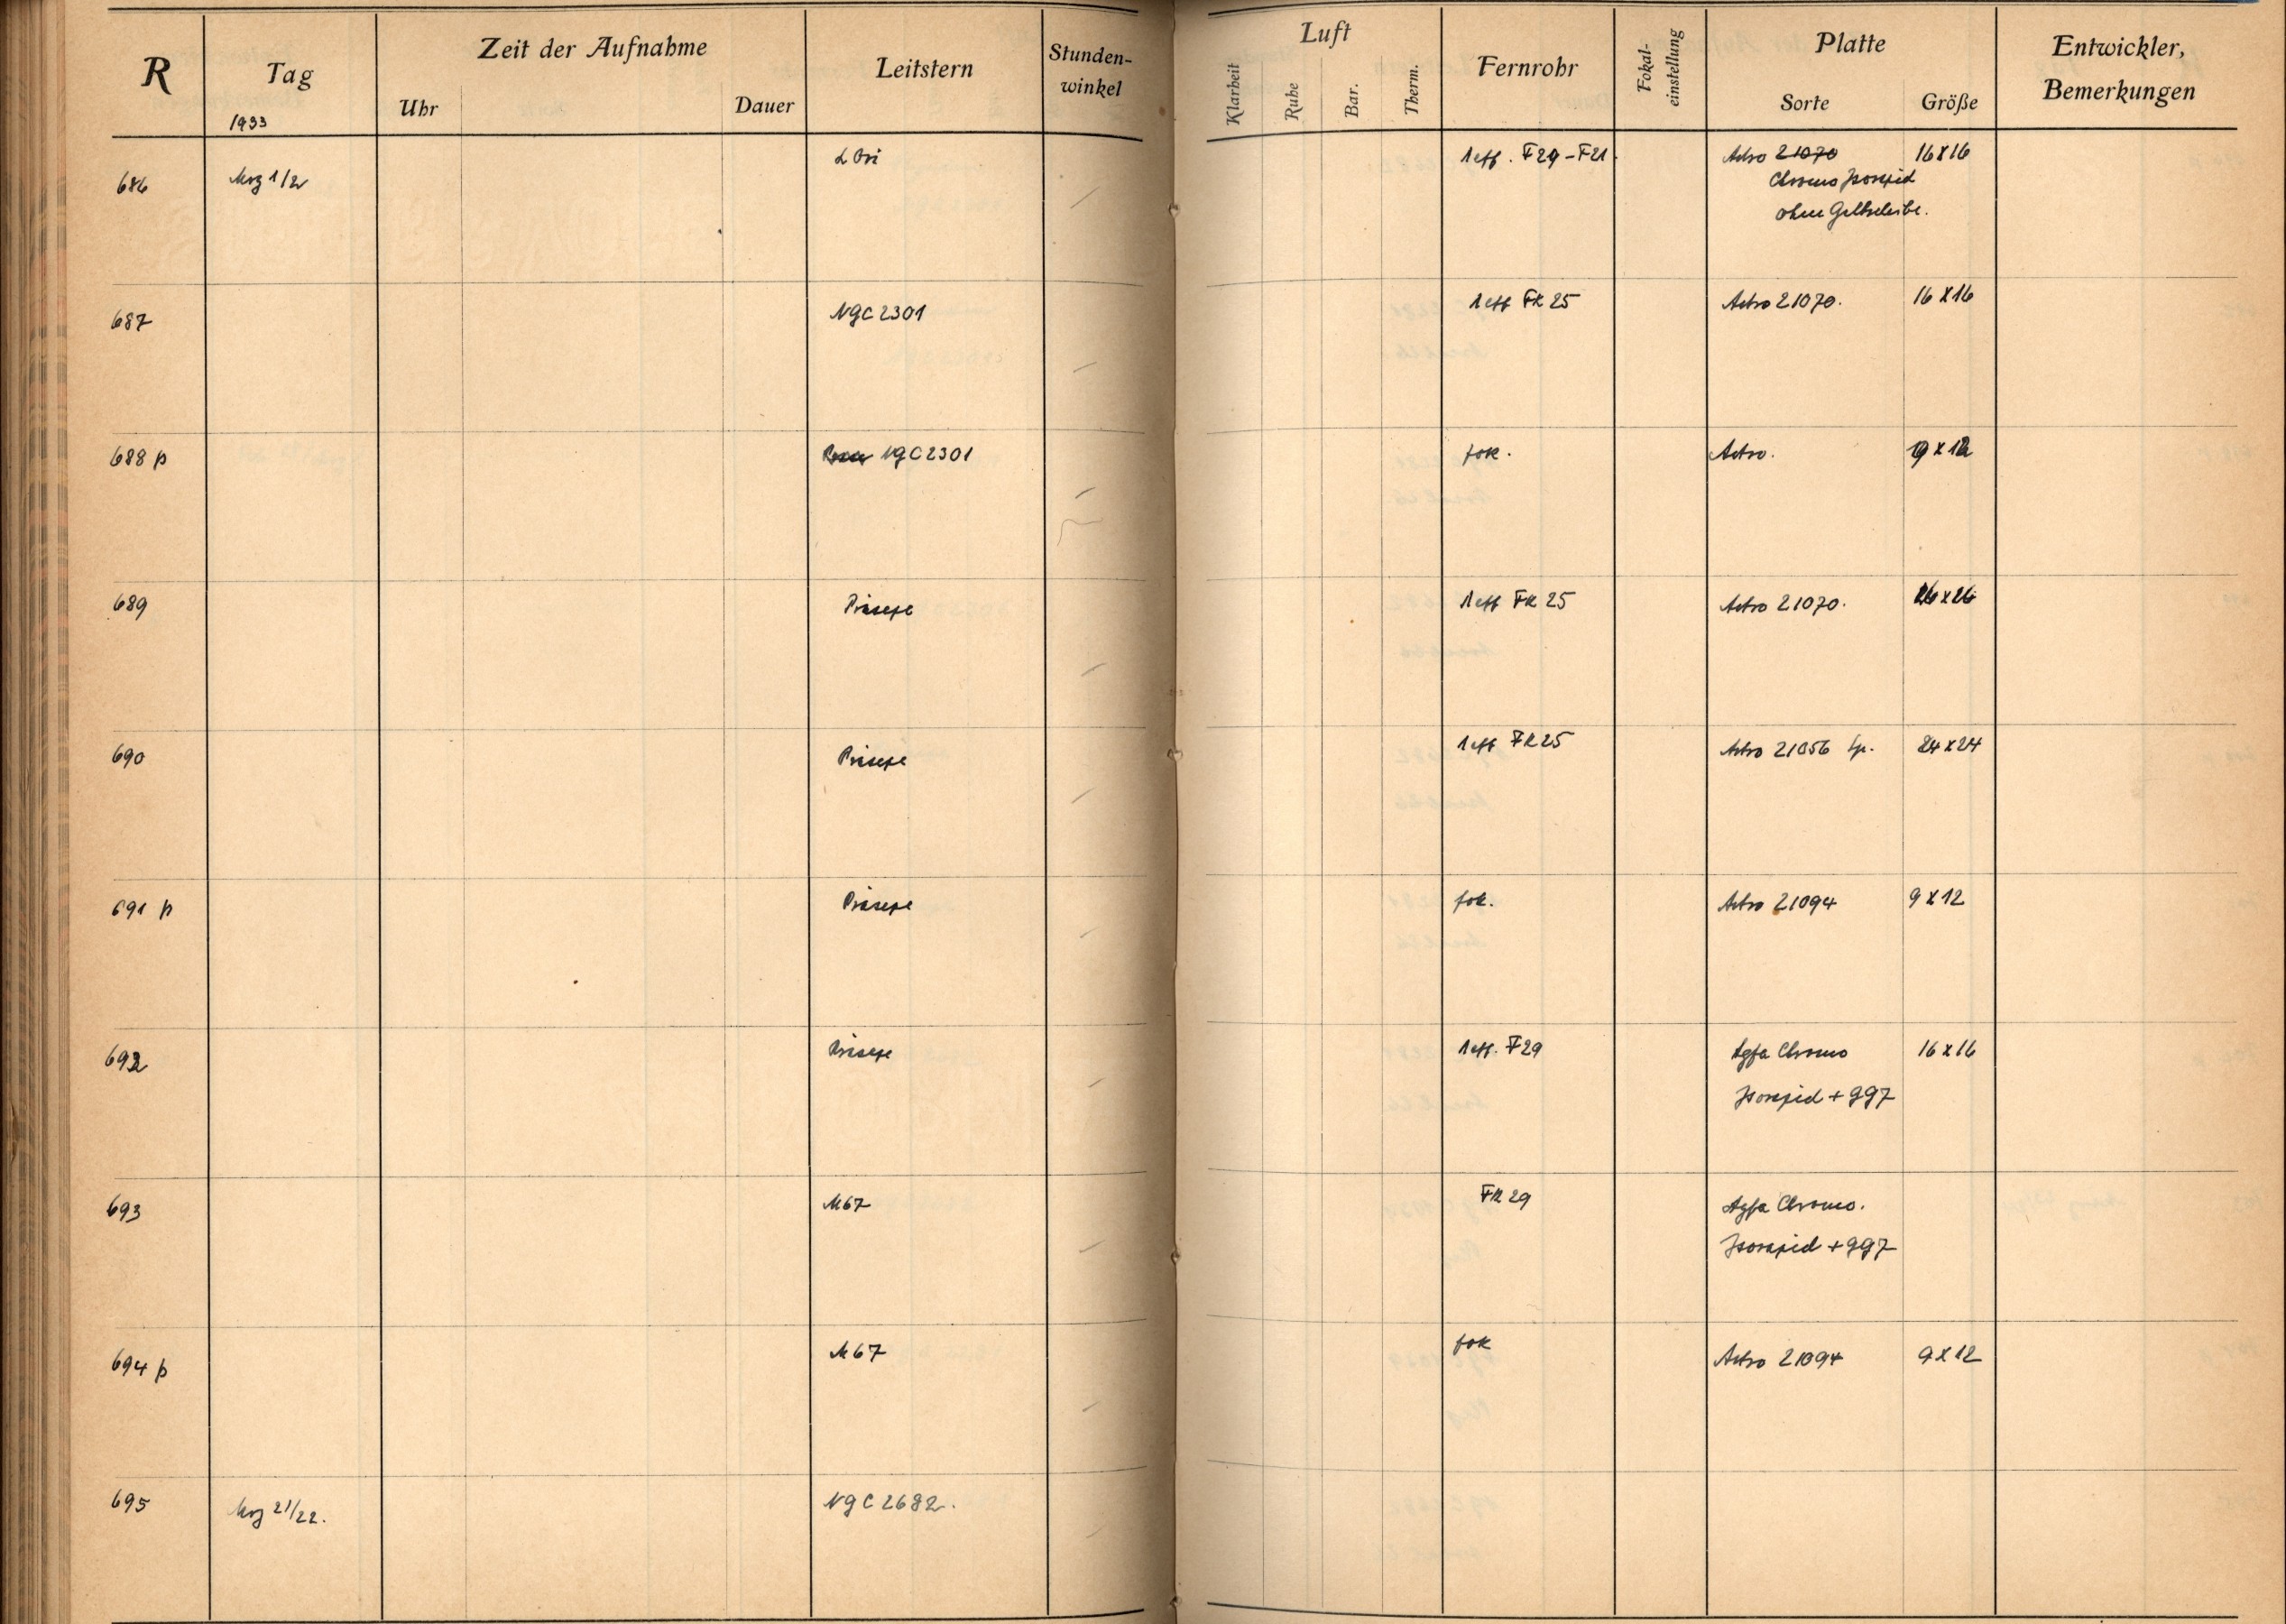 R Tag Zeit der Aufnahme Leitstern Stunden-winkel Luft Fernrohr Fokal-einstellung Platte Entwickler, Bemerkungen
1933 Uhr Dauer Klarheit Ruhe Bar. Therm. Sorte Größe
686 Mrz 1/2 α Ori 1eff. F29-F21. Astro 21070 16x16
Chromo Isorapid
ohne Gelbscheibe.
687 NGC 2301 1eff FK 25 Astro 21070. 16x16
688 p NGC 2301 fok. Astro. 9x12
689 Präsepe 1eff FK 25 Astro 21070.
690 Präsepe 1eff FK 25 Astro 21056 24x24
691 p Präsepe fok. Astro 21094 9x12
692 Präsepe 1eff. F29 Agfa Chromo 16x16
Isorapid + GG7
693 M67 FK 29 Agfa Chromo.
Isorapid + GG7
694 p M67 fok Astro 21094 9x12
695 Mrz 21/22. NGC 2682.